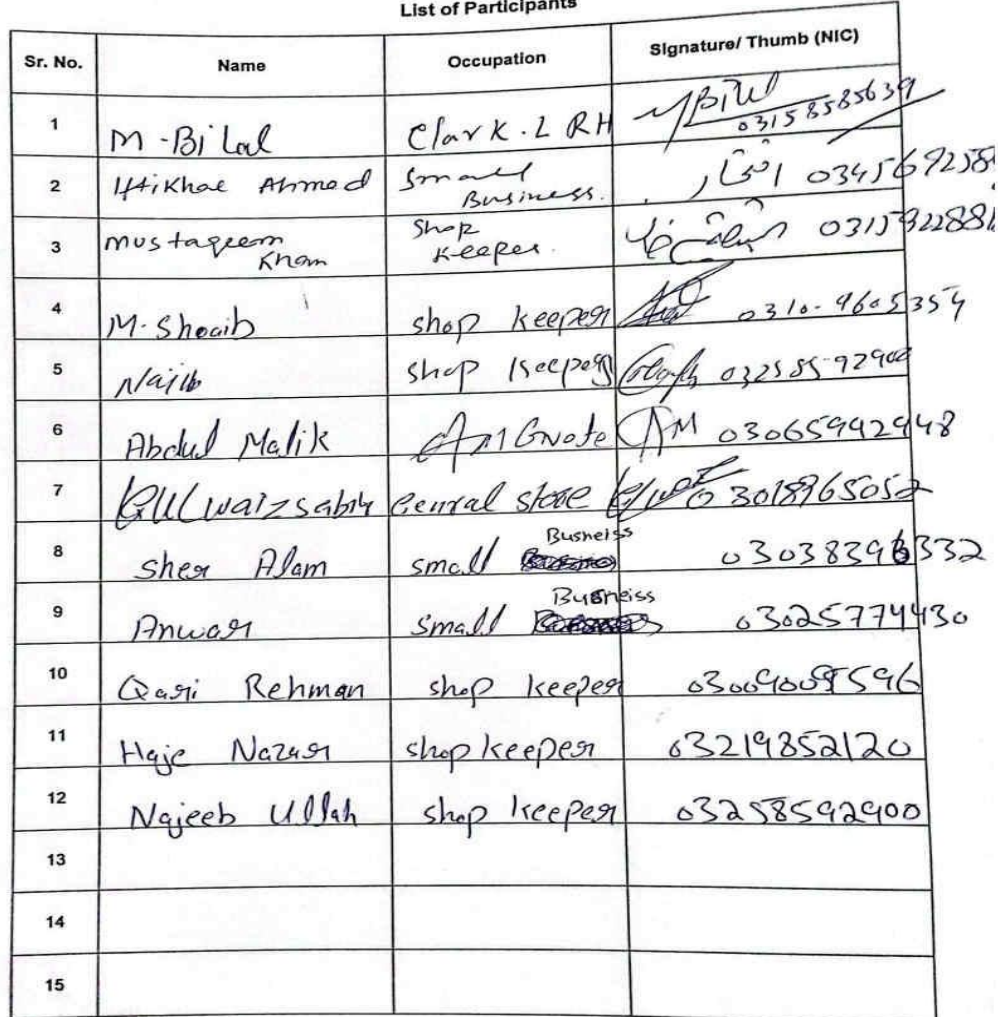 List of Participants
Sr. No. Name Occupation Signature/ Thumb (NIC)
1 M-Bilal Clark. L RH MBilal 03158585639
2 Iftikhar Ahmed Small Business. افتخار
3 Mustaqeem Khan Shop Keeper.
4 M. Shoaib shop keeper 0310-9605354
5 Najib shop keeper
6 Abdul Malik AM 03065942948
7 GUl waiz sabir Genral store 03018965052
8 sher Alam small Busneiss 03038396332
9 Anwar Small Busneiss 03025774430
10 Qari Rehman shop keeper
11 Haje Nazar shop keeper 03219852120
12 Najeeb Ullah shop keeper 03258592900
13
14
15